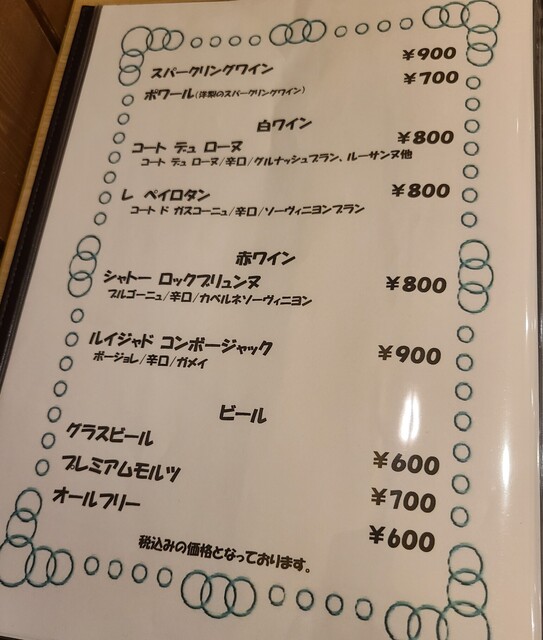 スパークリングワイン ¥900
ポワール(洋梨のスパークリングワイン) ¥700
白ワイン
コート デュ ローヌ ¥800
コート デュ ローヌ/辛口/グルナッシュブラン、ルーサンヌ他
レ ペイロタン ¥800
コート ド ガスコーニュ/辛口/ソーヴィニヨンブラン
赤ワイン
シャトー ロックブリュンヌ ¥800
ブルゴーニュ/辛口/カベルネソーヴィニヨン
ルイジャド コンボージャック ¥900
ボージョレ/辛口/ガメイ
ビール
グラスビール ¥600
プレミアムモルツ ¥700
オールフリー ¥600
税込みの価格となっております。